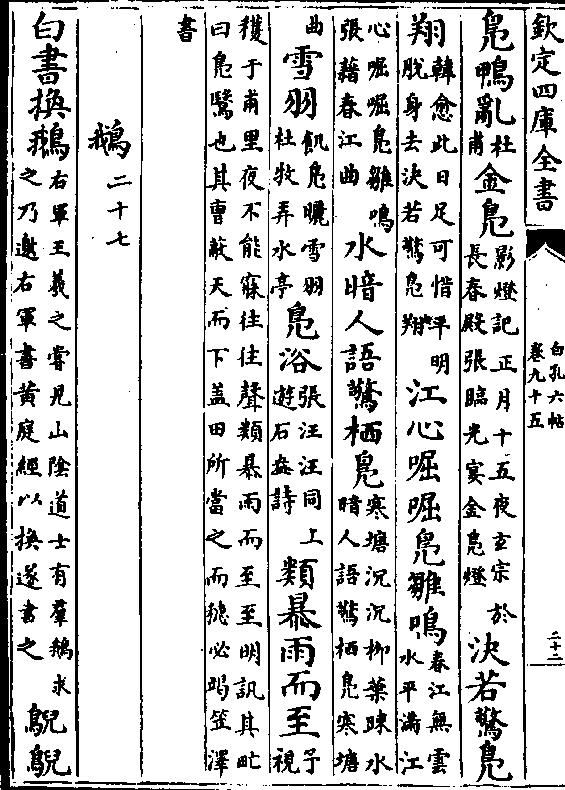 欽定四庫全書
白孔六帖
卷九十五
二十二
鳧鴨亂杜甫金鳧影燈記正月十五夜玄宗於長春殿張臨光宴金鳧燈決若驚鳧
翔韓愈此日足可惜平明脫身去決若驚鳧翔江心啒啒鳧雛鳴春江無雲水平滿江
心啒啒鳧雛鳴張藉春江曲水暗人語驚栖鳧寒塘沉沉柳葉踈水暗人語驚栖鳧寒塘
曲雪羽飢鳧曬雪羽杜牧弄水亭鳧浴張汪汪同上遊石盎詩類暴雨而至予視
穫于甫里夜不能寐往往聲類暴雨而至至明訊其甿曰鳧鷖也其曹蔽天而下蓋田所當之而穗必竭笠澤
書
鵝二十七
白書換鵝右軍王羲之嘗見山陰道士有羣鵝求之乃邀右軍書黄庭經以換遂書之鶃鶃